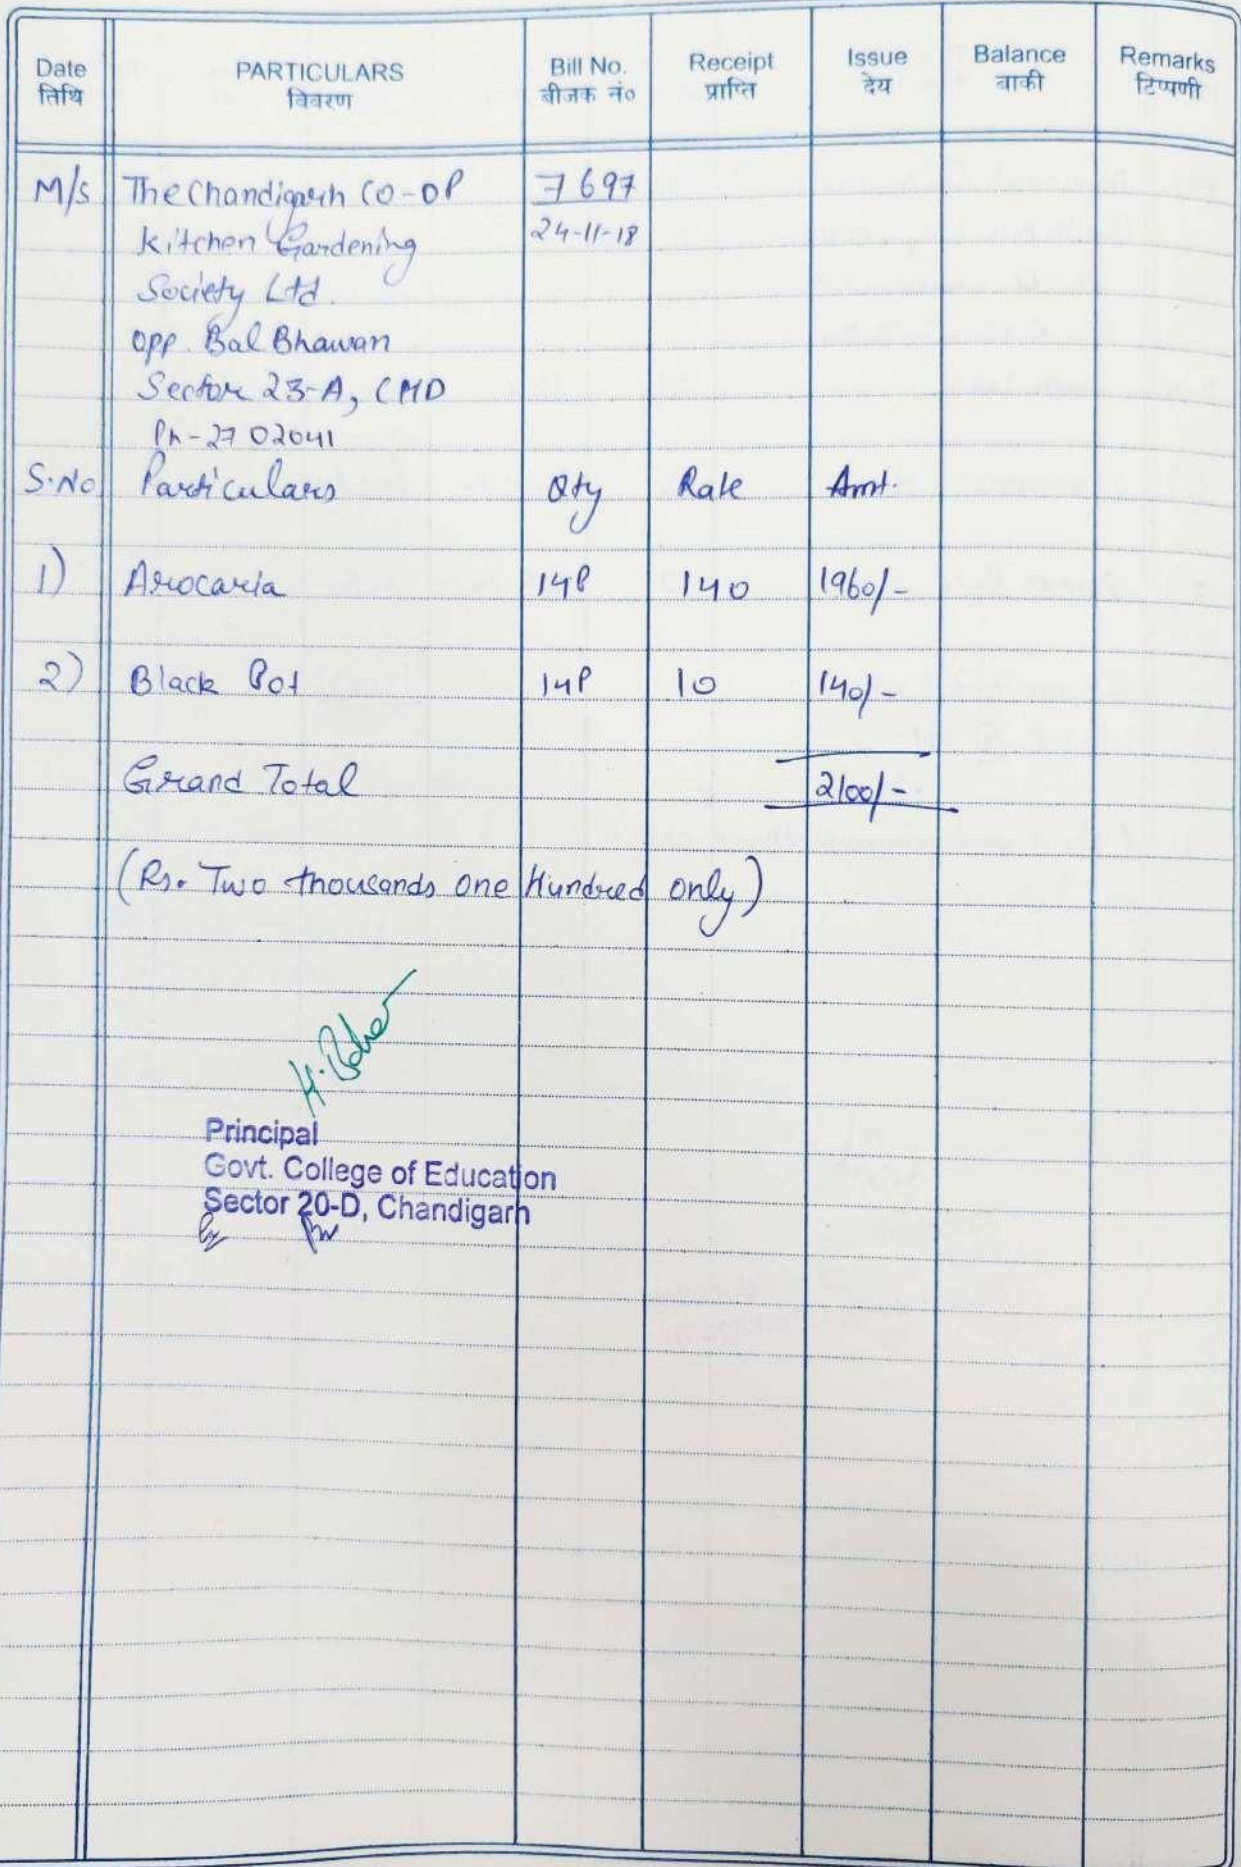 Date PARTICULARS Bill No. Receipt Issue Balance Remarks
तिथि विवरण बीजक नं० प्राप्ति देय बाकी टिप्पणी
M/s The Chandigarh CO-OP 7697
Kitchen Gardening 24-11-18
Society Ltd.
Opp. Bal Bhawan
Sector 23-A, CHD
Ph-27 02041
S.No Particulars Qty Rate Amt.
1) Arocaria 14P 140 1960/-
2) Black Pot 14P 10 140/-
Grand Total 2100/-
(Rs. Two thousands one Hundred only)
Principal
Govt. College of Education
Sector 20-D, Chandigarh